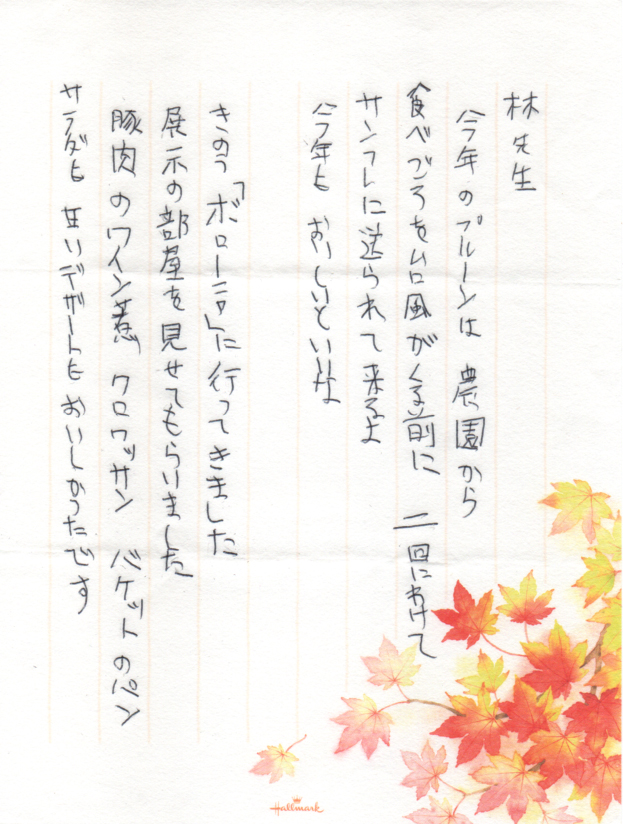 林先生
今年のプルーンは 農園から
食べごろを台風がくる前に 二回にわけて
サンフレに送られて来るよ
今年も おいしいといいな
きのう「ボローニャ」に行ってきました
展示の部屋を見せてもらいました
豚肉のワイン煮 クロワッサン バケットのパン
サラダも 甘いデザートも おいしかったです
Hallmark